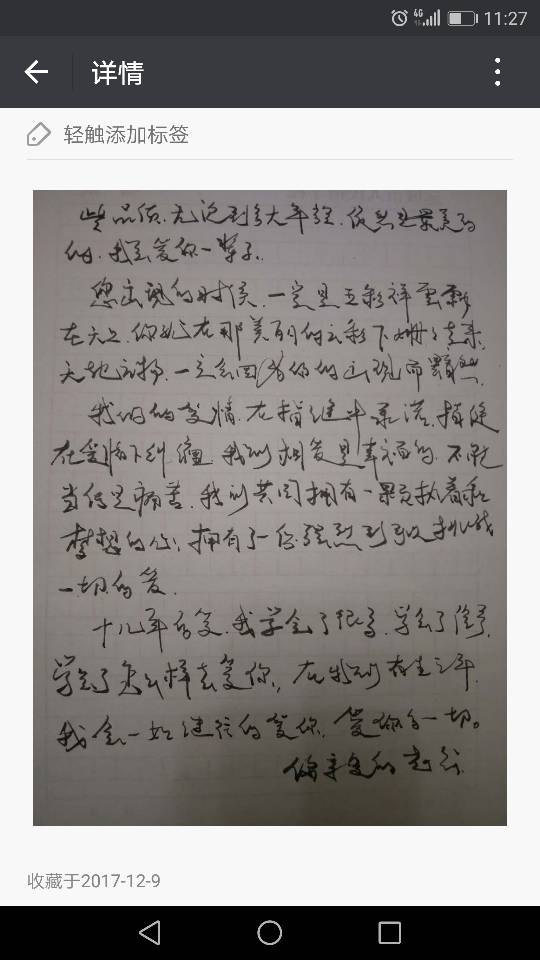 11:27
4G
详情
轻触添加标签
些品质.无论到多大年纪.依然是最美的
的.我会爱你一辈子.
您出现的时候.一定是五彩祥云飘
在天上.你站在那美丽的云彩下姗姗走来.
天地之物.一定会因为你的出现而黯然.
我们的爱情.在指缝中流.指缝
在爱情下纠缠.我们相爱是幸福的.不能
当作是痛苦.我们共同拥有一颗执着和
梦想的心.拥有了一份强烈到敢挑战
一切的爱.
十几年的爱.我学会了很多.学会了
学会了怎么样去爱你.在我们有生之年.
我会一如继往的爱你.爱你的一切。
你亲爱的老公.
收藏于2017-12-9